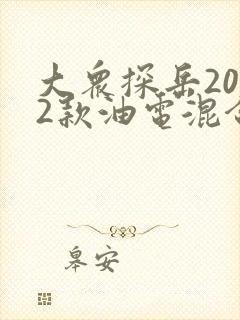 大众探岳20
2款油電混合
皋安